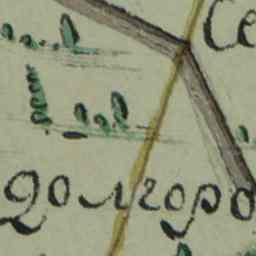 Се
долгоро